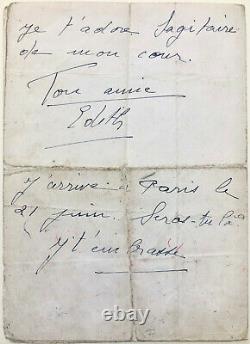 Je t'adore Sagitaire
de mon cœur.
Ton amie
Edith
J'arrive à Paris le
21 juin. Seras-tu là
Je t'embrasse
ebay.com